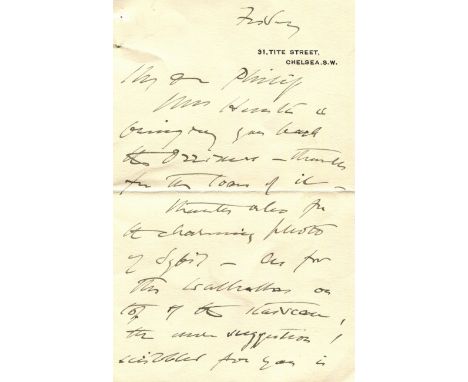 Friday
31, TITE STREET,
CHELSEA. S.W.
My dear Philip
Mrs Hunter is
bringing you back
the — thanks
for the loan of it —
Thanks also for
the charming photo
of Sybil — As for
the on
top of the staircase,
the suggestion I
scribbled for you is